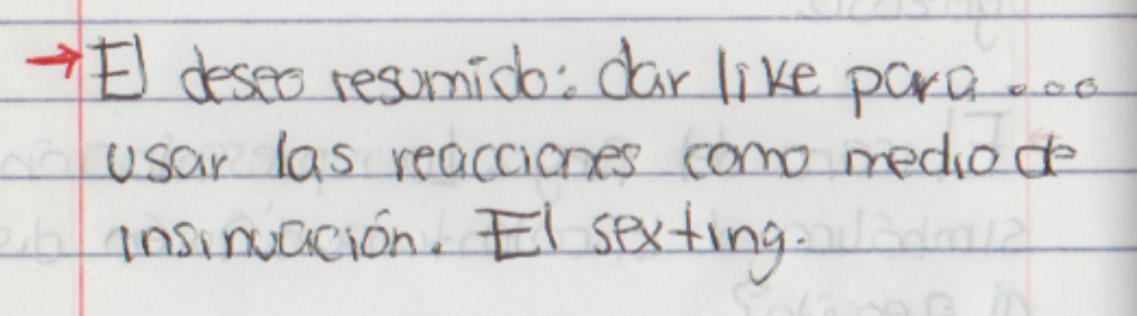 → El deseo resumido: dar like para...
usar las reacciones como medio de
insinuación. El sexting.